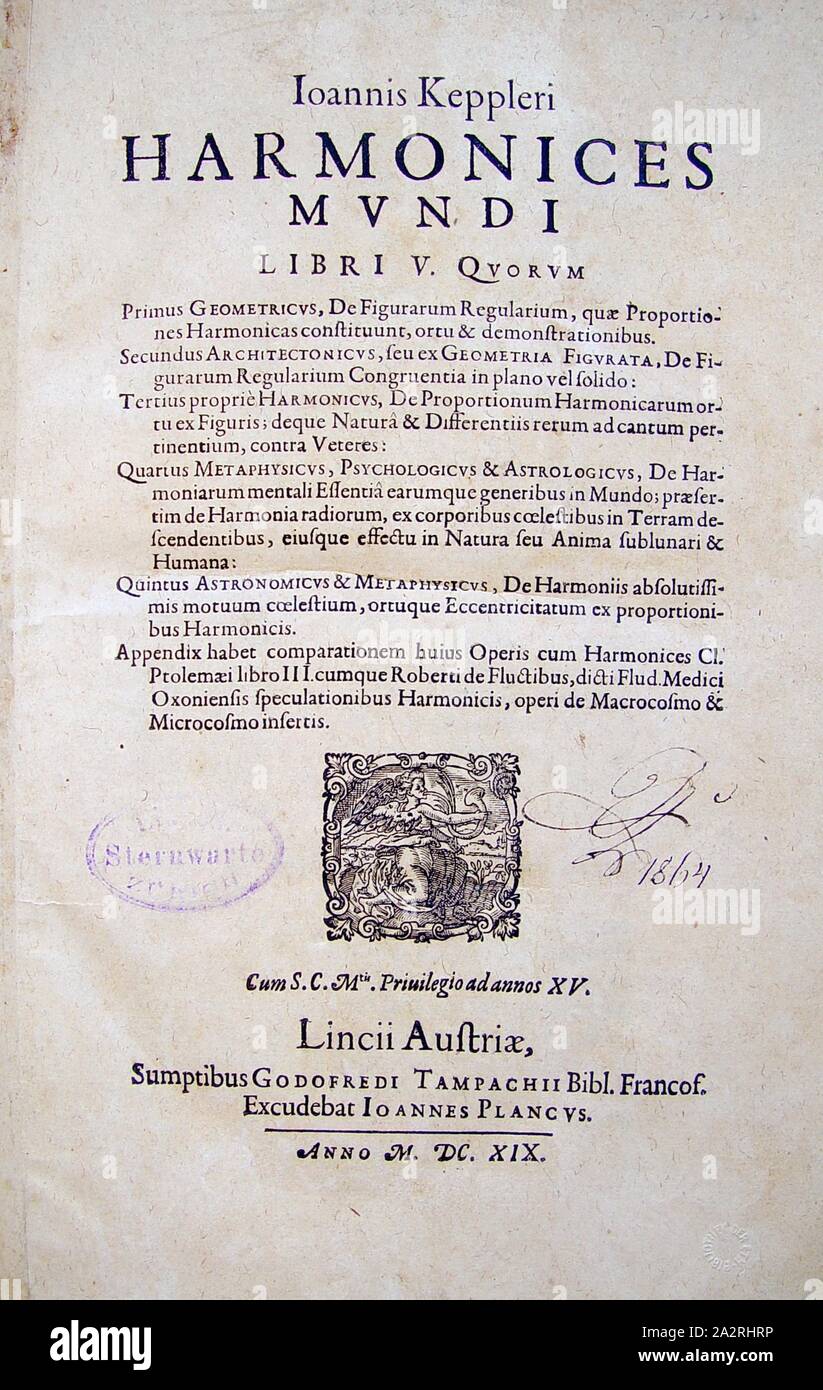 Ioannis Keppleri
HARMONICES
MVNDI
LIBRI V. QVORVM
Primus GEOMETRICVS, De Figurarum Regularium, quæ Proportio-
nes Harmonicas conſtituunt, ortu & demonſtrationibus.
Secundus ARCHITECTONICVS, ſeu ex GEOMETRIA FIGVRATA, De Fi-
gurarum Regularium Congruentia in plano vel ſolido:
Tertius propriè HARMONICVS, De Proportionum Harmonicarum or-
tu ex Figuris; deque Naturâ & Differentiis rerum ad cantum per-
tinentium, contra Veteres:
Quartus METAPHYSICVS, PSYCHOLOGICVS & ASTROLOGICVS, De Har-
moniarum mentali Eſſentiâ earumque generibus in Mundo; præſer-
tim de Harmonia radiorum, ex corporibus cœleſtibus in Terram de-
ſcendentibus, eiuſque effectu in Natura ſeu Anima ſublunari &
Humana:
Quintus ASTRONOMICVS & METAPHYSICVS, De Harmoniis abſolutiſſi-
mis motuum cœleſtium, ortuque Eccentricitatum ex proportioni-
bus Harmonicis.
Appendix habet comparationem huius Operis cum Harmonices Cl.
Ptolemæi libro III. cumque Roberti de Fluctibus, dicti Flud. Medici
Oxonienſis ſpeculationibus Harmonicis, operi de Macrocoſmo &
Microcoſmo inſertis.
Sternwarte
1864
Cum S. C. Mtis. Priuilegio ad annos XV.
Lincii Auſtriæ,
Sumptibus GODOFREDI TAMPACHII Bibl. Francof.
Excudebat IOANNES PLANCVS.
ANNO M. DC. XIX.
alamy
alamy
Image ID: 2A2RHRP
www.alamy.com